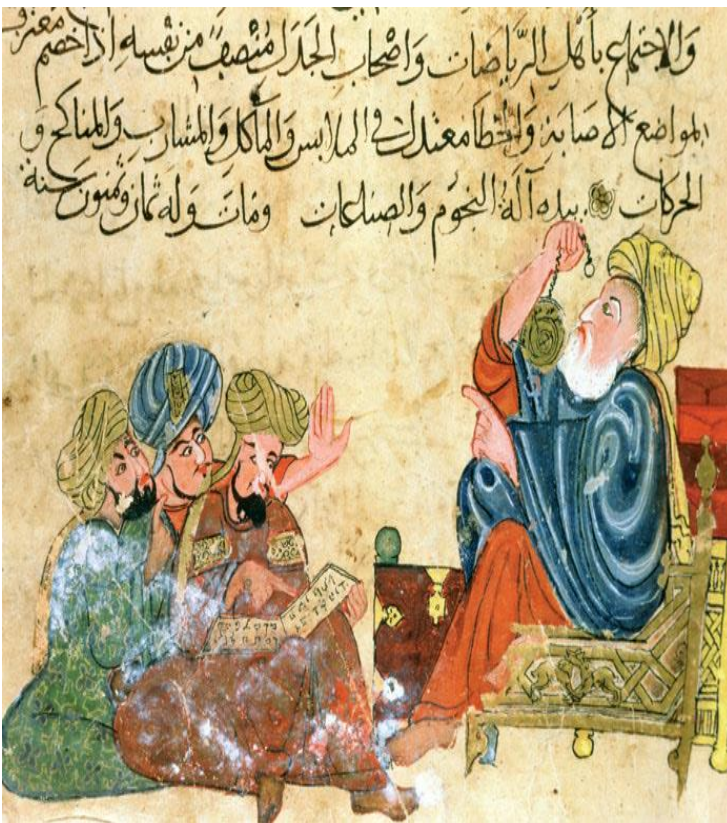 والاجتماع بأهل الرياضات واصحاب الجدل منصف من نفسه اذا خصم معترف
المواضع الاصابة والخطا معتدل في الملابس والمآكل والمشارب والمناكح و
الحركات بيده آلة النجوم والصناعات ومات وله ثمان وستون سنة